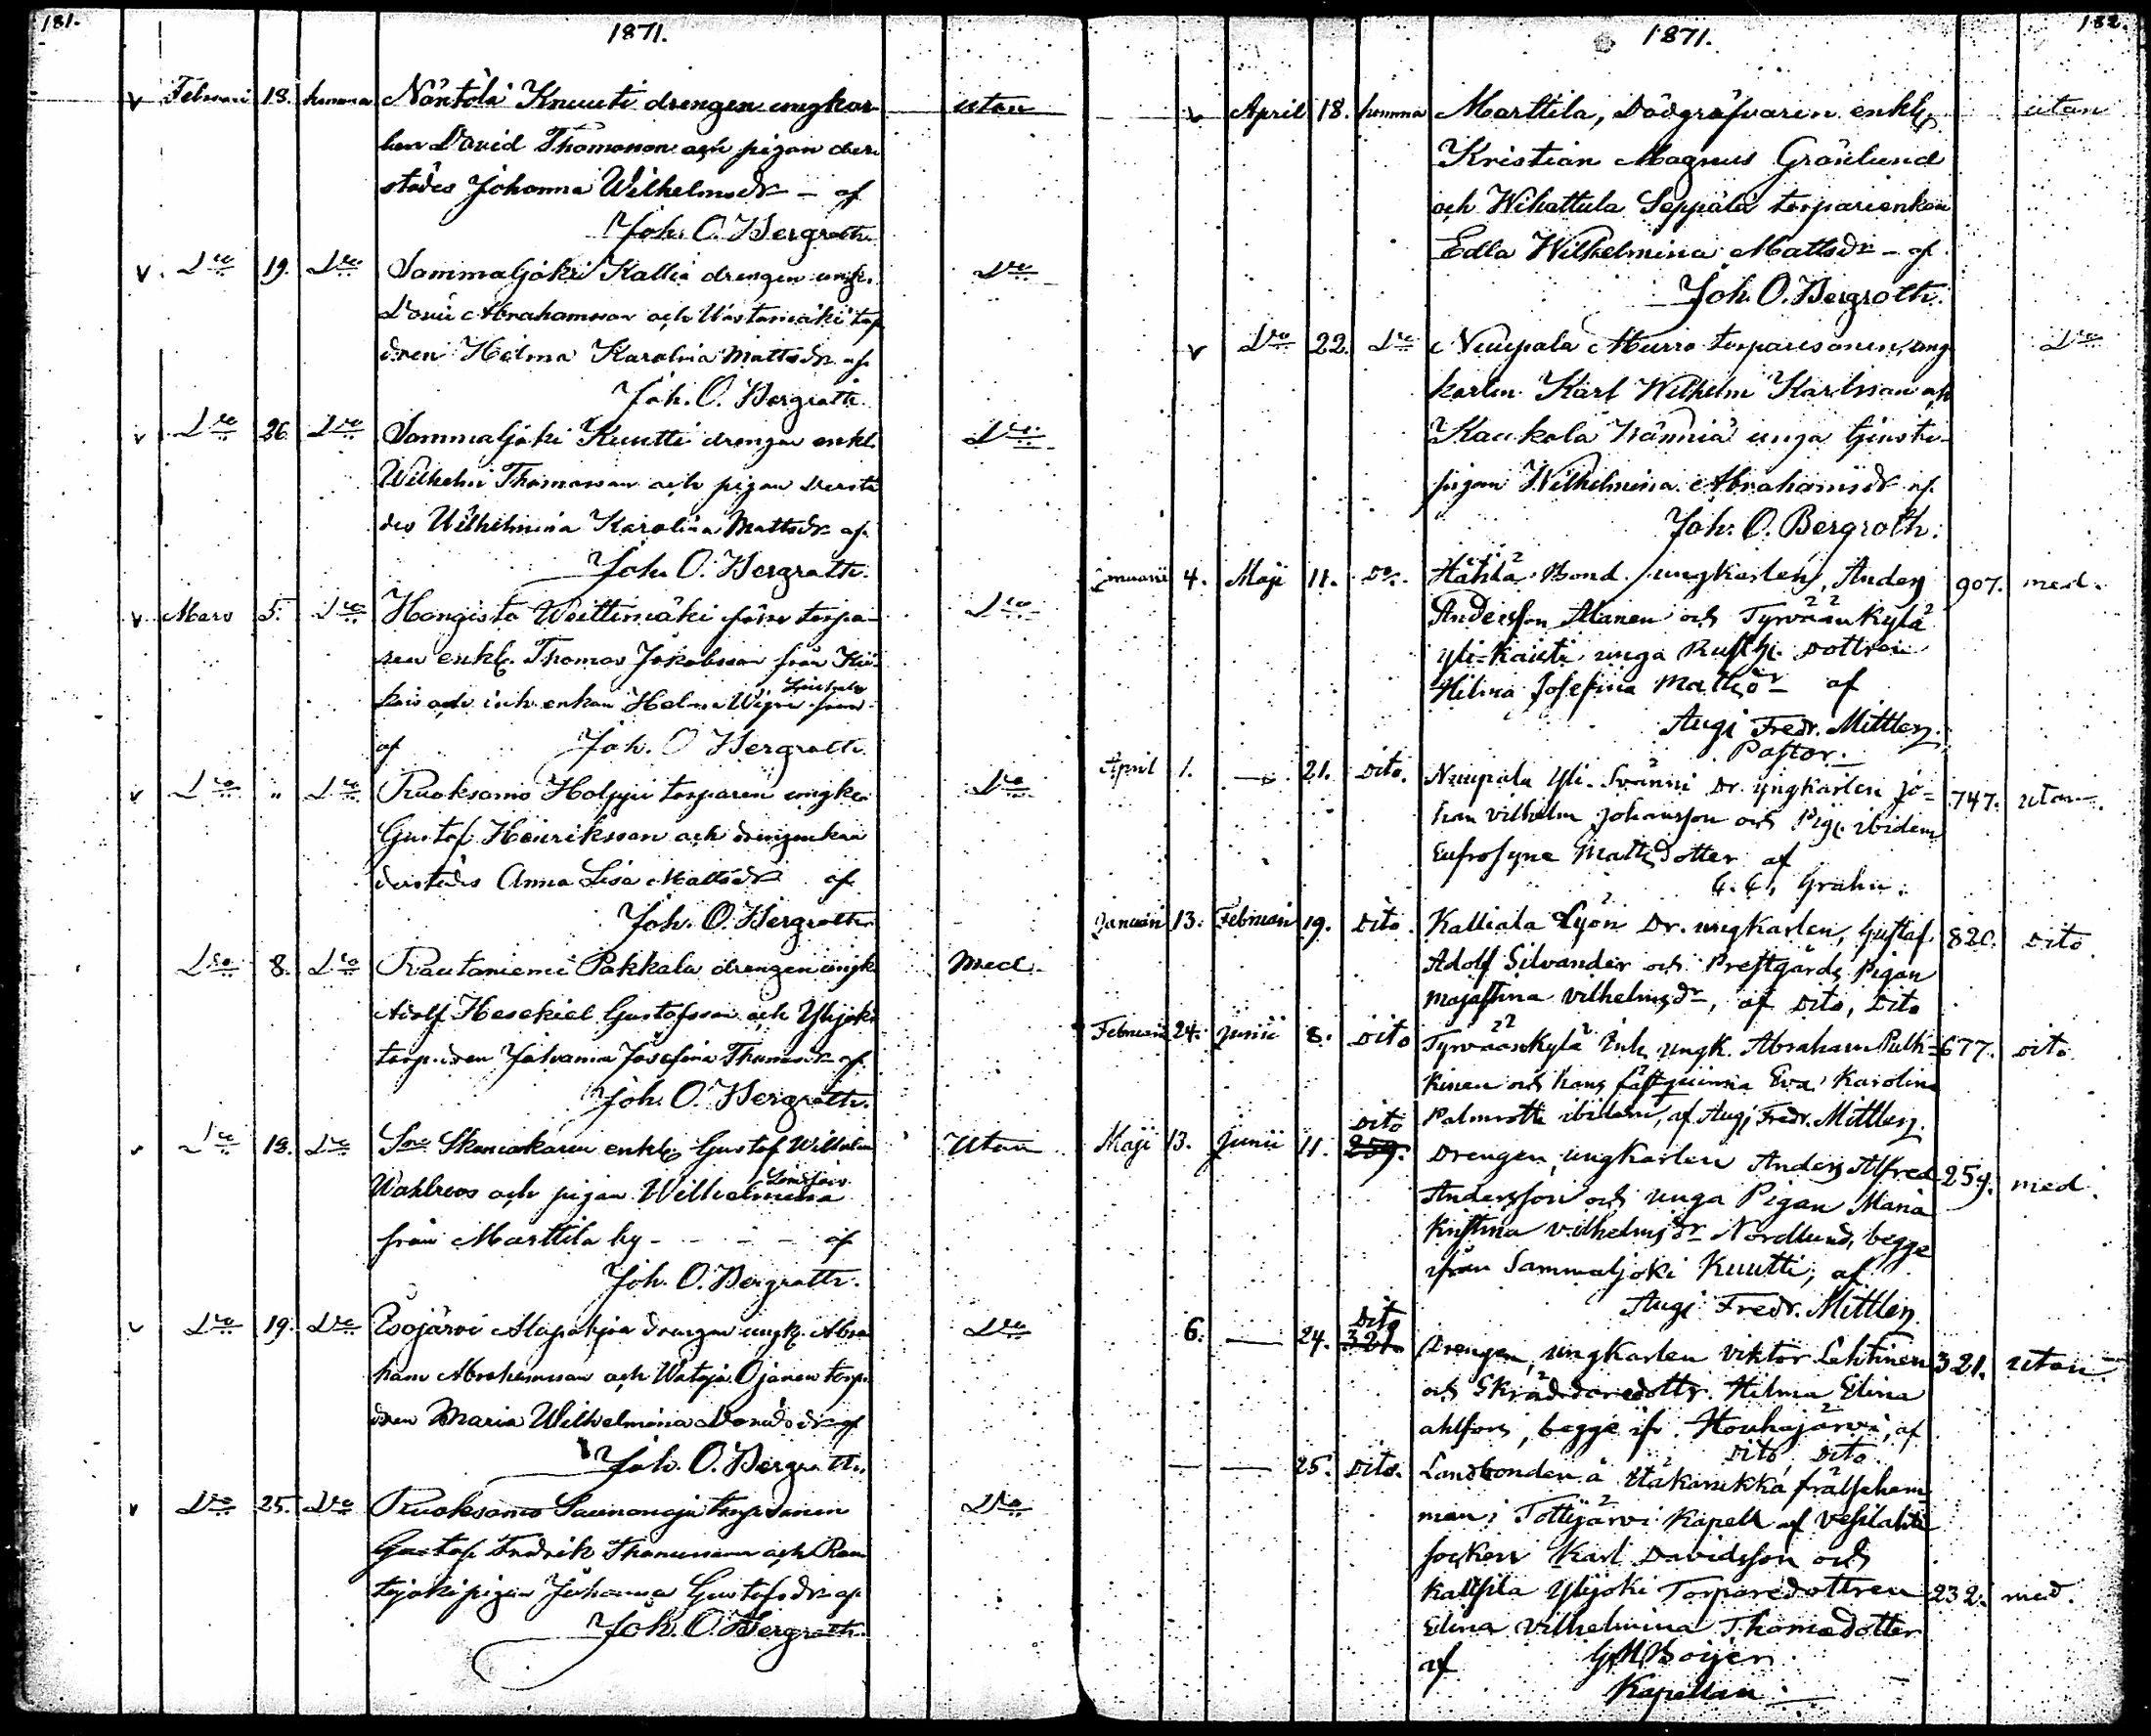 181.
1871.
v Februari 18. hemma Näntölä Knuuti drengen ungkar- utan
len David Thomasson och pigan der-
städes Johanna Wilhelmsdr – af
Joh. O. Bergroth.
v Dro 19. Dro Sammaljoki Kallia drengen ungk. Dro
Abrahamsson och
dren Helma Karolina Mattsdr af
Joh. O. Bergroth.
v Dro 26. Dro Sammaljoki Kuutti drengen enkl. Dro
Wilhelm Thomasson och pigan derstä
des Wilhelmina Karolina Mattsdr af
Joh. O. Bergroth.
v Mars 5. Dro Hongisto Weittimäki torpa- Dro
ren enkl. Thomas Jakobsson från Kii-
kois och inh. enkan Helena
af Joh. O. Bergroth.
v Dro " Dro Ruoksamo Holppu torparen ungk. Dro
Gustaf Henriksson och drengenkan
derstädes Anna Lisa Mattsdr af
Joh. O. Bergroth.
Dro 8. Dro Rautaniemi Pakkala drengen ungk. Med
Adolf Hesekiel Gustafsson och Ylijoki
torp.dren Johanna Josefina Thomasdr af
Joh. O. Bergroth.
v Dro 18. Dro enkl. Gustaf Wilhelm Utan
Wahlroos och pigan Wilhelmina Lindfors
från Marttila by - - - - af
Joh. O. Bergroth.
v Dro 19. Dro Esojärvi drengen ungk. Abra Dro
ham Abrahamsson och Wataja Ojanen torp.
dren Maria Wilhelmina Davidsdr af
Joh. O. Bergroth.
v Dro 25. Dro Ruoksamo Saunanoja torp.sonen Dro
Gustaf Fredrik Thomasson och Rau
tajoki pigan Johanna Gustafsdr af
Joh. O. Bergroth.
182.
1871.
v April 18. hemma Marttila, Dödgräfvaren enkl. utan
Kristian Magnus Grönlund
och Wihattula Seppälä torparienkan
Edla Wilhelmina Mattsdr – af
Joh. O. Bergroth.
v Dro 22. Dro Nuupala Murro torparesonen, ung Dro
karlen Karl Wilhelm Karlsson och
Kaukola Nänniä unga tjenste-
pigan Wilhelmina Abrahamsdr af
Joh. O. Bergroth.
Januarii 4. Maji 11. Do. Hählä Bond. ungkarlen, Anders 907. med.
Andersson Alanen och Tyrväänkylä
Yli-Kaiuti unga Rusth. dottren
Hilma Josefina Mattsdr af
Augi Fredr. Mittler.
Pastor.
April 1. — 21. Dito. Nuupala Yli-Svänni Dr. ungkarlen Jo= 747. utan.
han Vilhelm Johansson och Pig. ibidem
Eufrosyne Mattsdotter af
G. G. Grahn.
Januari 13. Februari 19. Dito. Kalliala Lyön Dr. ungkarlen, Gustaf 820. Dito
Adolf Silvander och Prestgårds Pigan
Majastina Vilhelmsdr, af Dito, Dito
Februari 24. Junii 8. Dito Tyrväänkylä Inh. ungk. Abraham Pulk= 677. Dito
kinen och hans fästqvinna Eva Karolina
Palmroth ibidem, af Augi Fredr. Mittler.
Maji 13. Junii 11. Dito 259. Drengen, ungkarlen Anders Alfred 259. med.
Andersson och unga Pigan Maria
Kristina Vilhelmsdr Nordlund, begge
ifrån Sammaljoki Kuutti, af
Augi Fredr. Mittler.
6. — 24. Dito 321. Drengen, ungkarlen Viktor Lehtinen 321. utan.
och Skräddaredottr. Hilma Elina
Ahlfors, begge ifr. Houhajärvi, af
Dito Dito.
— — 25. Dito. Landbonden å frälsehem
man i Tottijärvi Kapell af Vesilahti
socken Karl Davidsson och
Kallsila Ylijoki Torparedottren 232. med.
Elina Vilhelmina Thomædotter
af
Kapellan